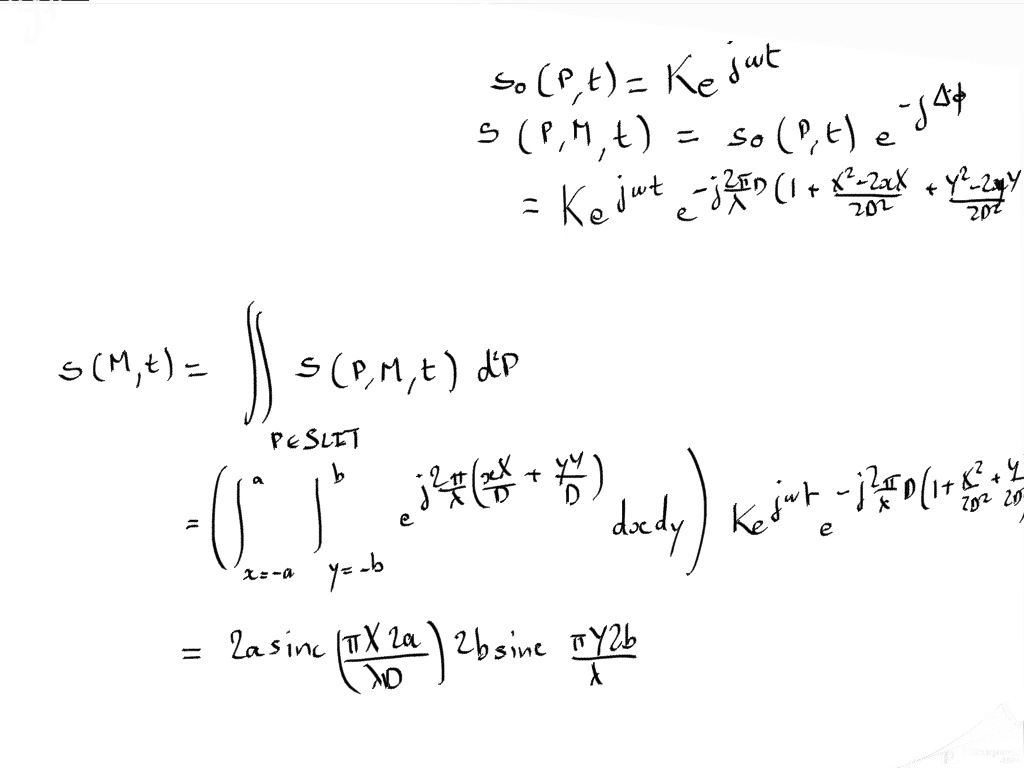 s₀(P,t) = K e^{jωt}
s(P,M,t) = s₀(P,t) e^{-jΔφ}
= K e^{jωt} e^{-j\frac{2π}{λ}D(1 + \frac{X²-2xX}{2D²} + \frac{Y²-2yY}{2D²}}
s(M,t) = ∬_{P∈SLIT} s(P,M,t) d²P
= (∫_{x=-a}^{a} ∫_{y=-b}^{b} e^{j\frac{2π}{λ}(\frac{xX}{D} + \frac{yY}{D})} dxdy) K e^{jωt} e^{-j\frac{2π}{λ}D(1 + \frac{X²}{2D²} + \frac{Y}{2D}}
= 2a sinc(\frac{πX2a}{λD}) 2b sinc \frac{πY2b}{λ}